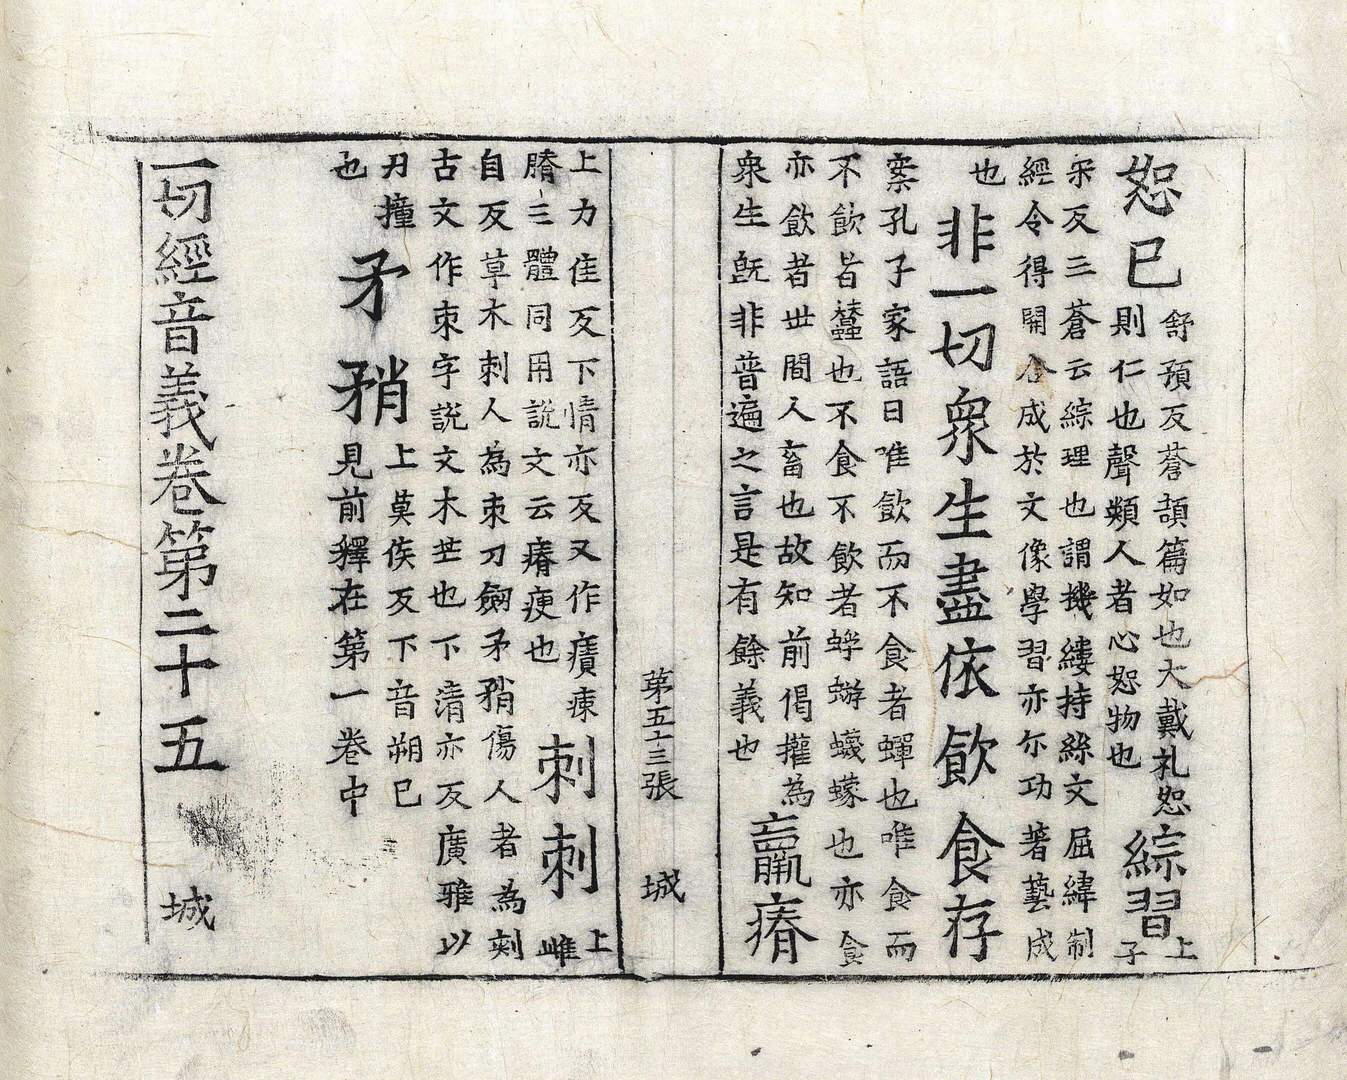 恕巳
舒預反蒼頡篇如也大戴礼恕
則仁也聲類人者心恕物也
綜習
上
子
宋反三蒼云綜理也謂機縷持絲文屈緯制
經令得開合成於文像學習亦尒功著藝成
也
非一切衆生盡依飲食存
案孔子家語曰唯飲而不食者蟬也唯食而
不飲者蠶也不食不飲者蜉蝣蠛蠓也亦食
亦飲者世間人畜也故知前偈攉為
衆生旣非普遍之言是有餘義也
羸瘠
第五十三張
城
上力隹反下情亦反又作㿉㾊
膌三體同用説文云瘠瘦也
刺刺
上
雌
自反草木刺人為朿刀劒矛矟傷人者為刺
古文作朿字説文木芒也下清亦反廣雅以
刃撞
也
矛矟
上莫侯反下音朔已
見前釋在第一卷中
一切經音義卷第二十五
城